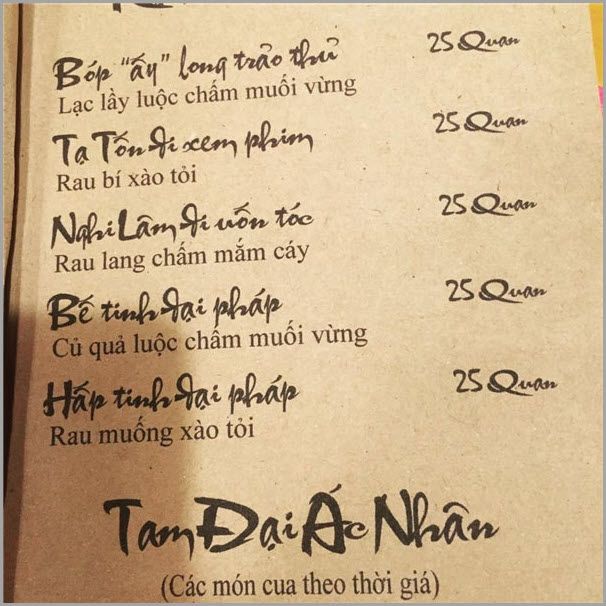 Bóp “ấy” long trảo thủ 25 Quan
Lạc lầy luộc chấm muối vừng
Tạ Tốn đi xem phim 25 Quan
Rau bí xào tỏi
Nghi Lâm đi uốn tóc 25 Quan
Rau lang chấm mắm cáy
Bế tinh đại pháp 25 Quan
Củ quả luộc chấm muối vừng
Hấp tinh đại pháp 25 Quan
Rau muống xào tỏi
Tam Đại Ác Nhân
(Các món cua theo thời giá)